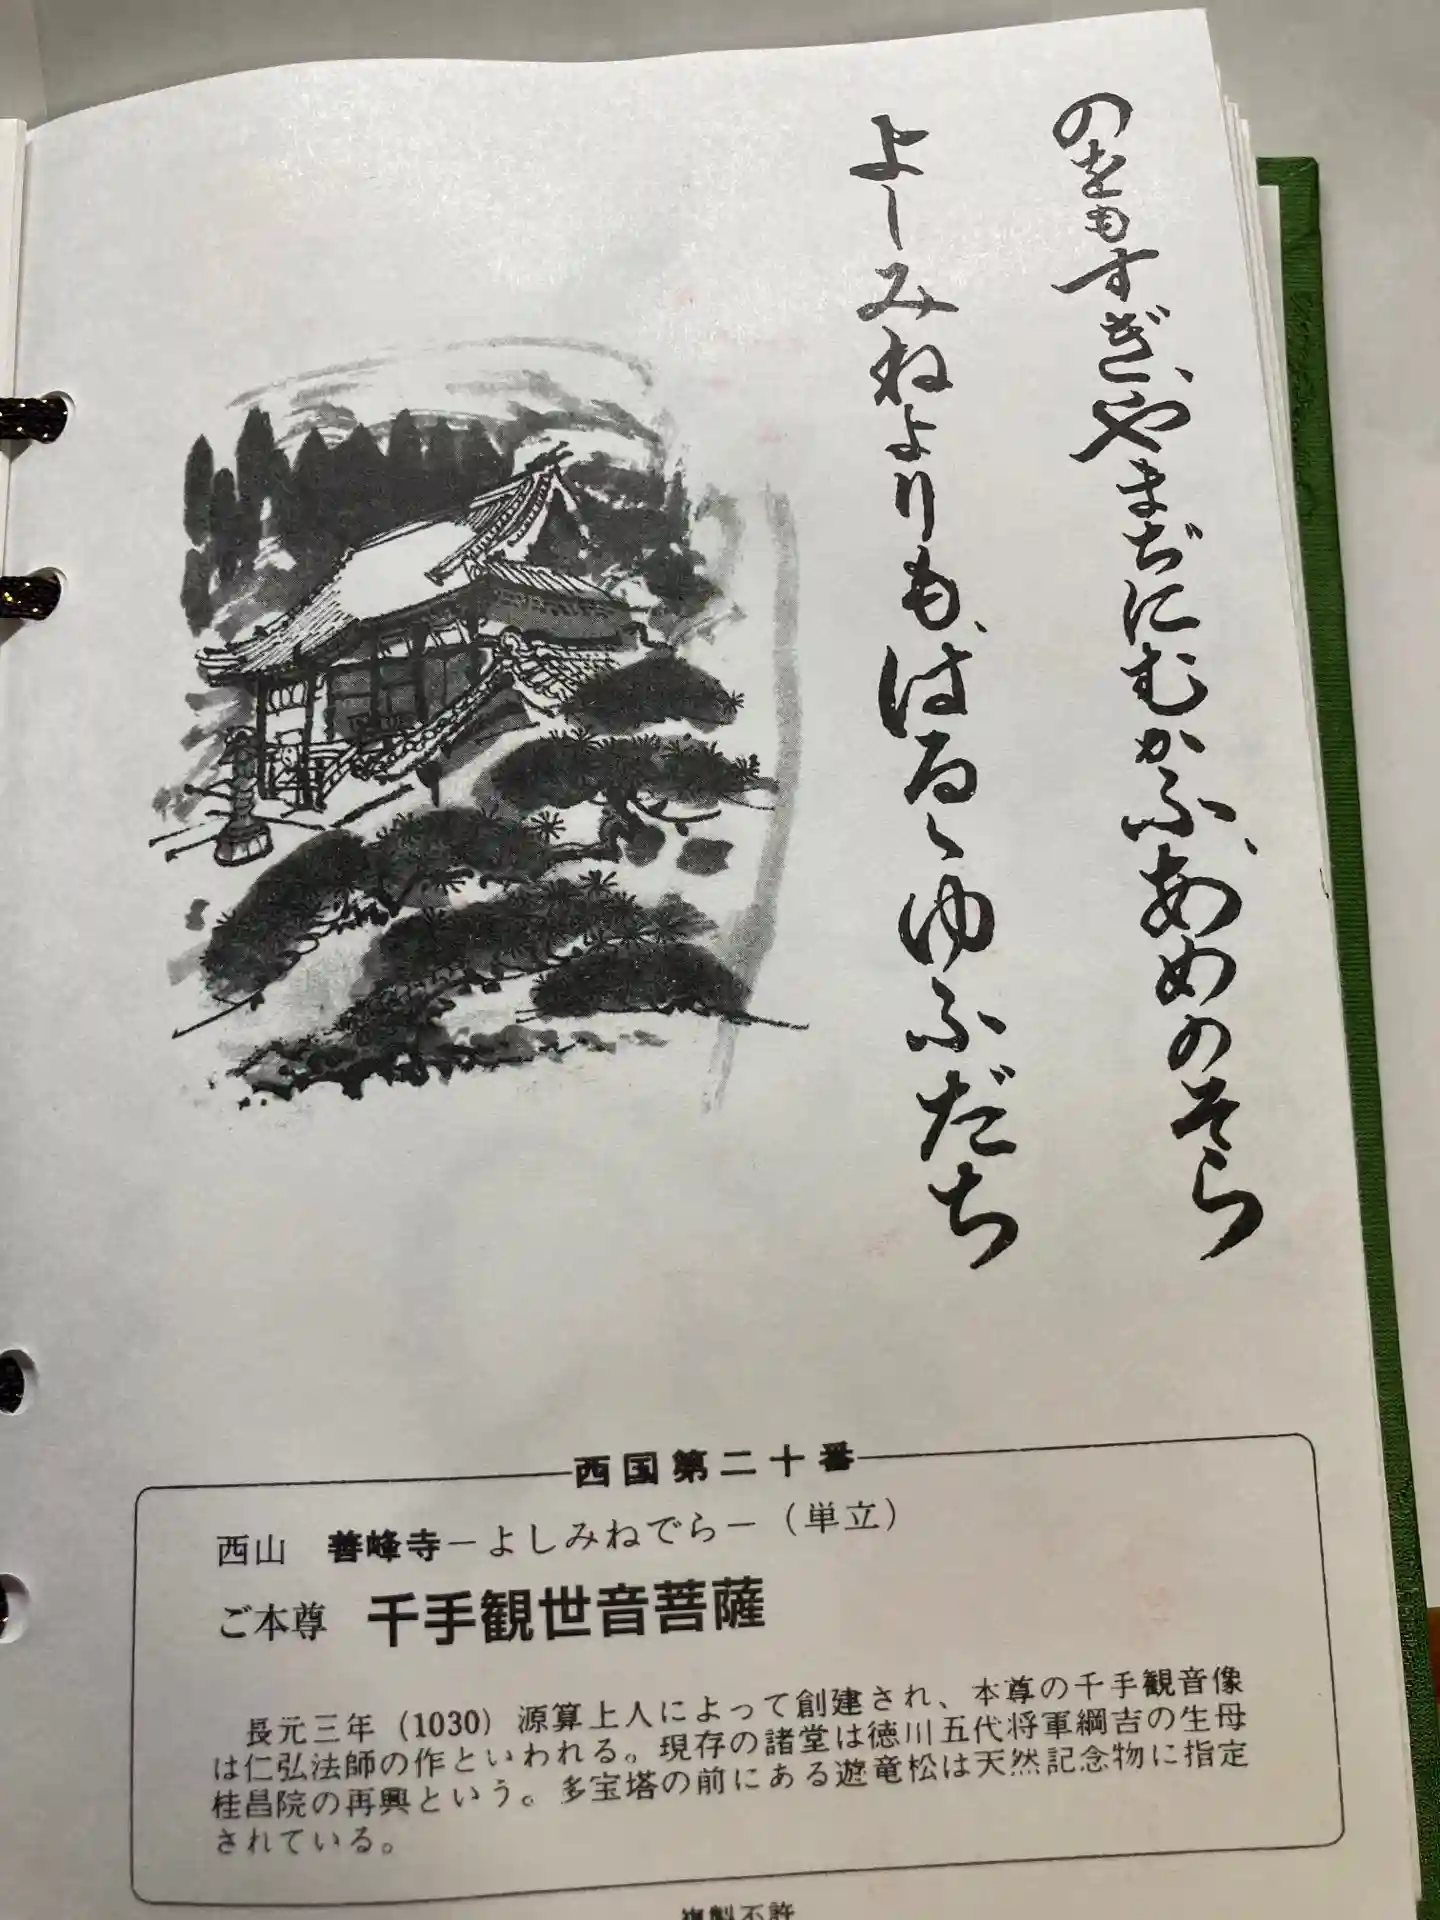 のをもすぎ、やまぢにむかふ、あめのそら
よしみねよりも、はるゝゆふだち
西国第二十番
西山 善峰寺－よしみねでら－（単立）
ご本尊 千手観世音菩薩
長元三年（1030）源算上人によって創建され、本尊の千手観音像
は仁弘法師の作といわれる。現存の諸堂は徳川五代将軍綱吉の生母
桂昌院の再興という。多宝塔の前にある遊竜松は天然記念物に指定
されている。
複製不許